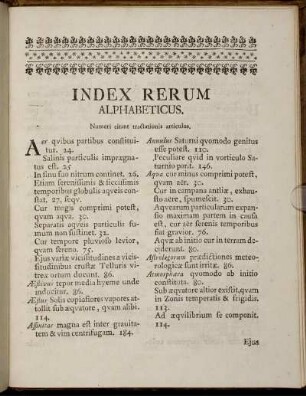 INDEX RERUM
ALPHABETICUS,
Numeri citant tractationis articulos.
Aer qvibus partibus constitui-
tur. 24.
Salinis particulis impregna-
tus est. 25
In sinu suo nitrum continet. 26.
Etiam serenissimis & siccissimis
temporibus globulis aqveis con-
stat. 27. seqv.
Cur magis comprimi potest,
quam aqva. 30.
Separatis aqveis particulis fu-
mum non sustinet. 31.
Cur tempore pluvioso levior,
quam sereno. 75.
Ejus variæ vicissitudines a vicis-
situdinibus crustæ Telluris vi-
trex ortum ducunt. 86.
Æstivus tepor media hyeme unde
inducitur. 86.
Æstus Solis cupiosiores vapores at-
tollit sub æqvatore, quam alibi.
114.
Affinitas magna est inter gravita-
tem & vim centrifugam. 184.
Annulus Saturni qvomodo genitus
esse potest. 120.
Peculiare qvid in vorticulo Sa-
turnio parit. 146.
Aqva cur minus comprimi potest,
quam aër. 30.
Cur in campana antliæ, exhau-
sto aëre, spumescit. 30.
Aqvearum particularum expan-
sio maximam partem in causa
est, cur aër serenis temporibus
sit gravior. 76.
Aqvæ ab initio cur in terram de-
ciderunt. 80.
Astrologorum prædictiones meteo-
rologicæ sunt irritæ. 86.
Atmosphæra qvomodo ab initio
constituta. 80.
Sub æqvatore altior existit, qvam
in Zonis temperatis & frigidis.
113.
Ad æqvilibrium se componit.
114.
Ejus